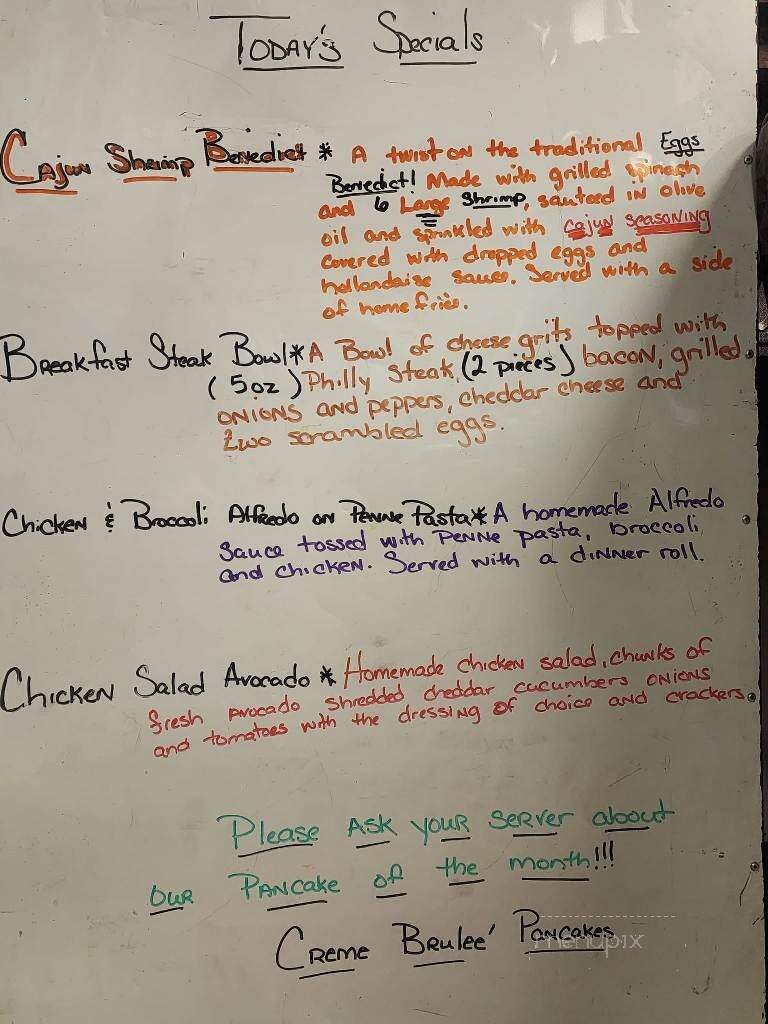 Today's Specials
Cajun Shrimp Benedict * A twist on the traditional Eggs
Benedict! Made with grilled spinach
and 6 Large Shrimp, sauteed in olive
oil and sprinkled with cajun seasoning
covered with dropped eggs and
hollandaise sauce. Served with a side
of home fries.
Breakfast Steak Bowl * A Bowl of cheese grits topped with
(5oz) Philly steak, (2 pieces) bacon, grilled
onions and peppers, cheddar cheese and
two scrambled eggs.
Chicken & Broccoli Alfredo on Penne Pasta * A homemade Alfredo
sauce tossed with penne pasta, broccoli
and chicken. Served with a dinner roll.
Chicken Salad Avocado * Homemade chicken salad, chunks of
fresh avocado shredded cheddar cucumbers onions
and tomatoes with the dressing of choice and crackers.
Please ask your server aboout
our Pancake of the month!!!
Creme Brulee' Pancakes
menupix